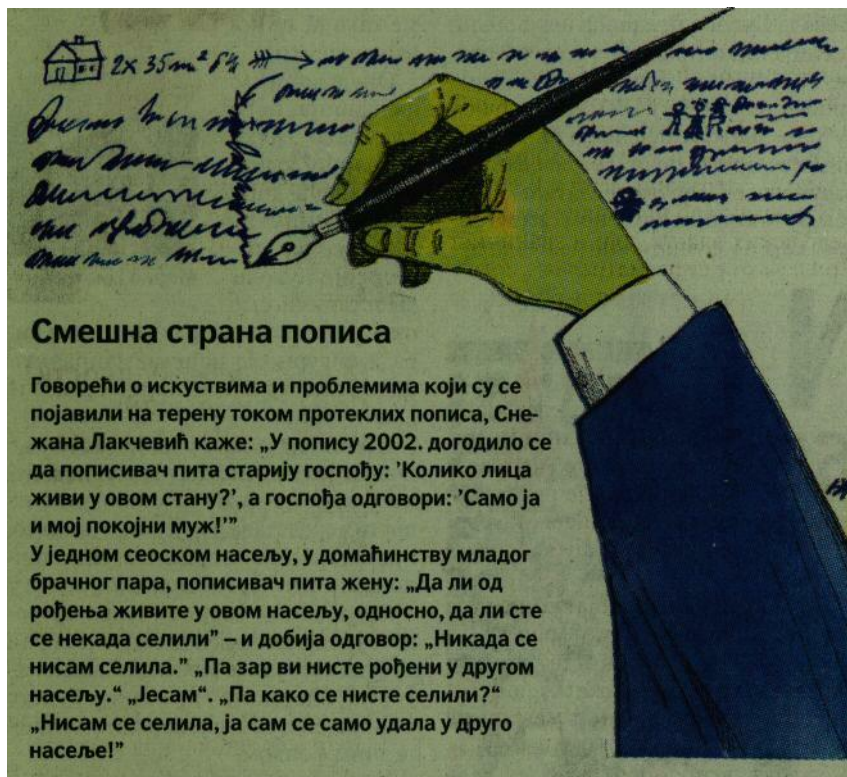 2x 35m²
Смешна страна пописа
Говорећи о искуствима и проблемима који су се
појавили на терену током протеклих пописа, Сне-
жана Лакчевић каже: „У попису 2002. догодило се
да пописивач пита старију госпођу: ’Колико лица
живи у овом стану?’, а госпођа одговори: ’Само ја
и мој покојни муж!’”
У једном сеоском насељу, у домаћинству младог
брачног пара, пописивач пита жену: „Да ли од
рођења живите у овом насељу, односно, да ли сте
се некада селили” – и добија одговор: „Никада се
нисам селила.” „Па зар ви нисте рођени у другом
насељу.“ „Јесам“. „Па како се нисте селили?“
„Нисам се селила, ја сам се само удала у друго
насеље!”